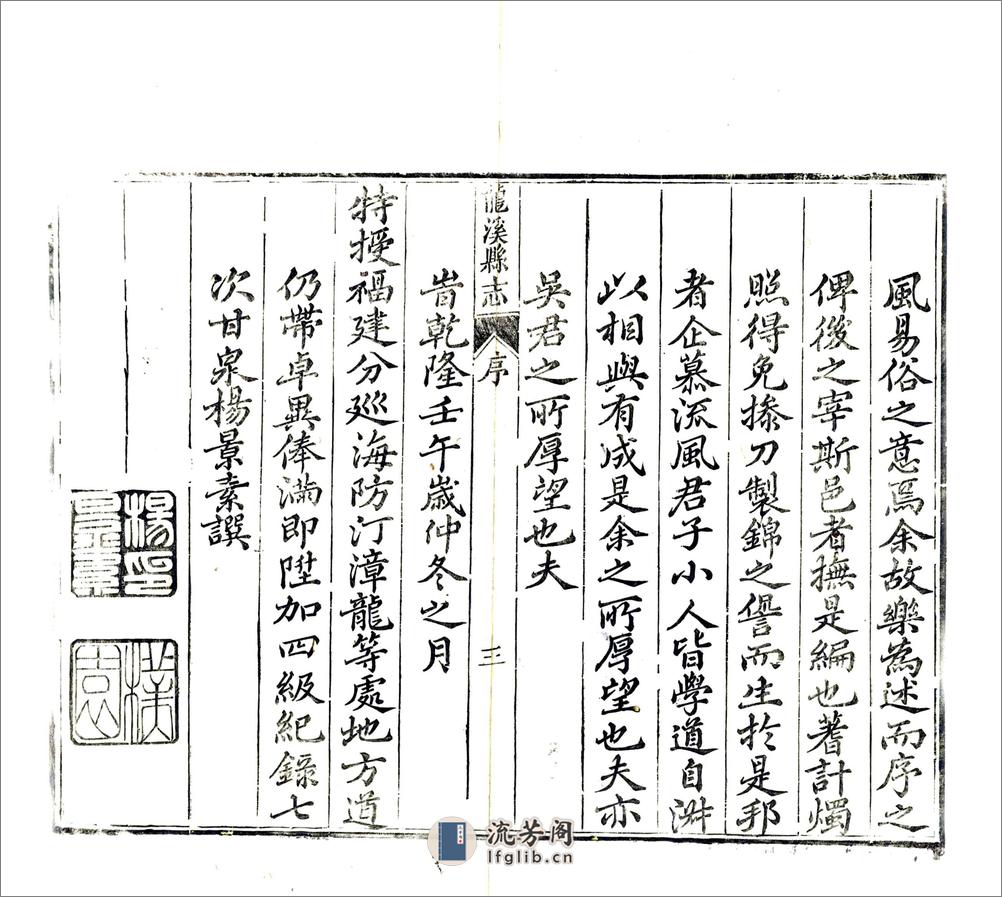 風易俗之意焉余故樂為述而序之
俾後之宰斯邑者撫是編也蓍計燭
照得免摻刀製錦之譽而生於是邦
者企慕流風君子小人皆學道自淑
以相與有成是余之所厚望也夫亦
吳君之所厚望也夫
龍溪縣志 序 三
旹乾隆壬午歲仲冬之月
特授福建分巡海防汀漳龍等處地方道
仍帶卓異俸滿即陞加四級紀錄七
次甘泉楊景素譔
楊印景素
樸園
流芳阁
lfglib.cn